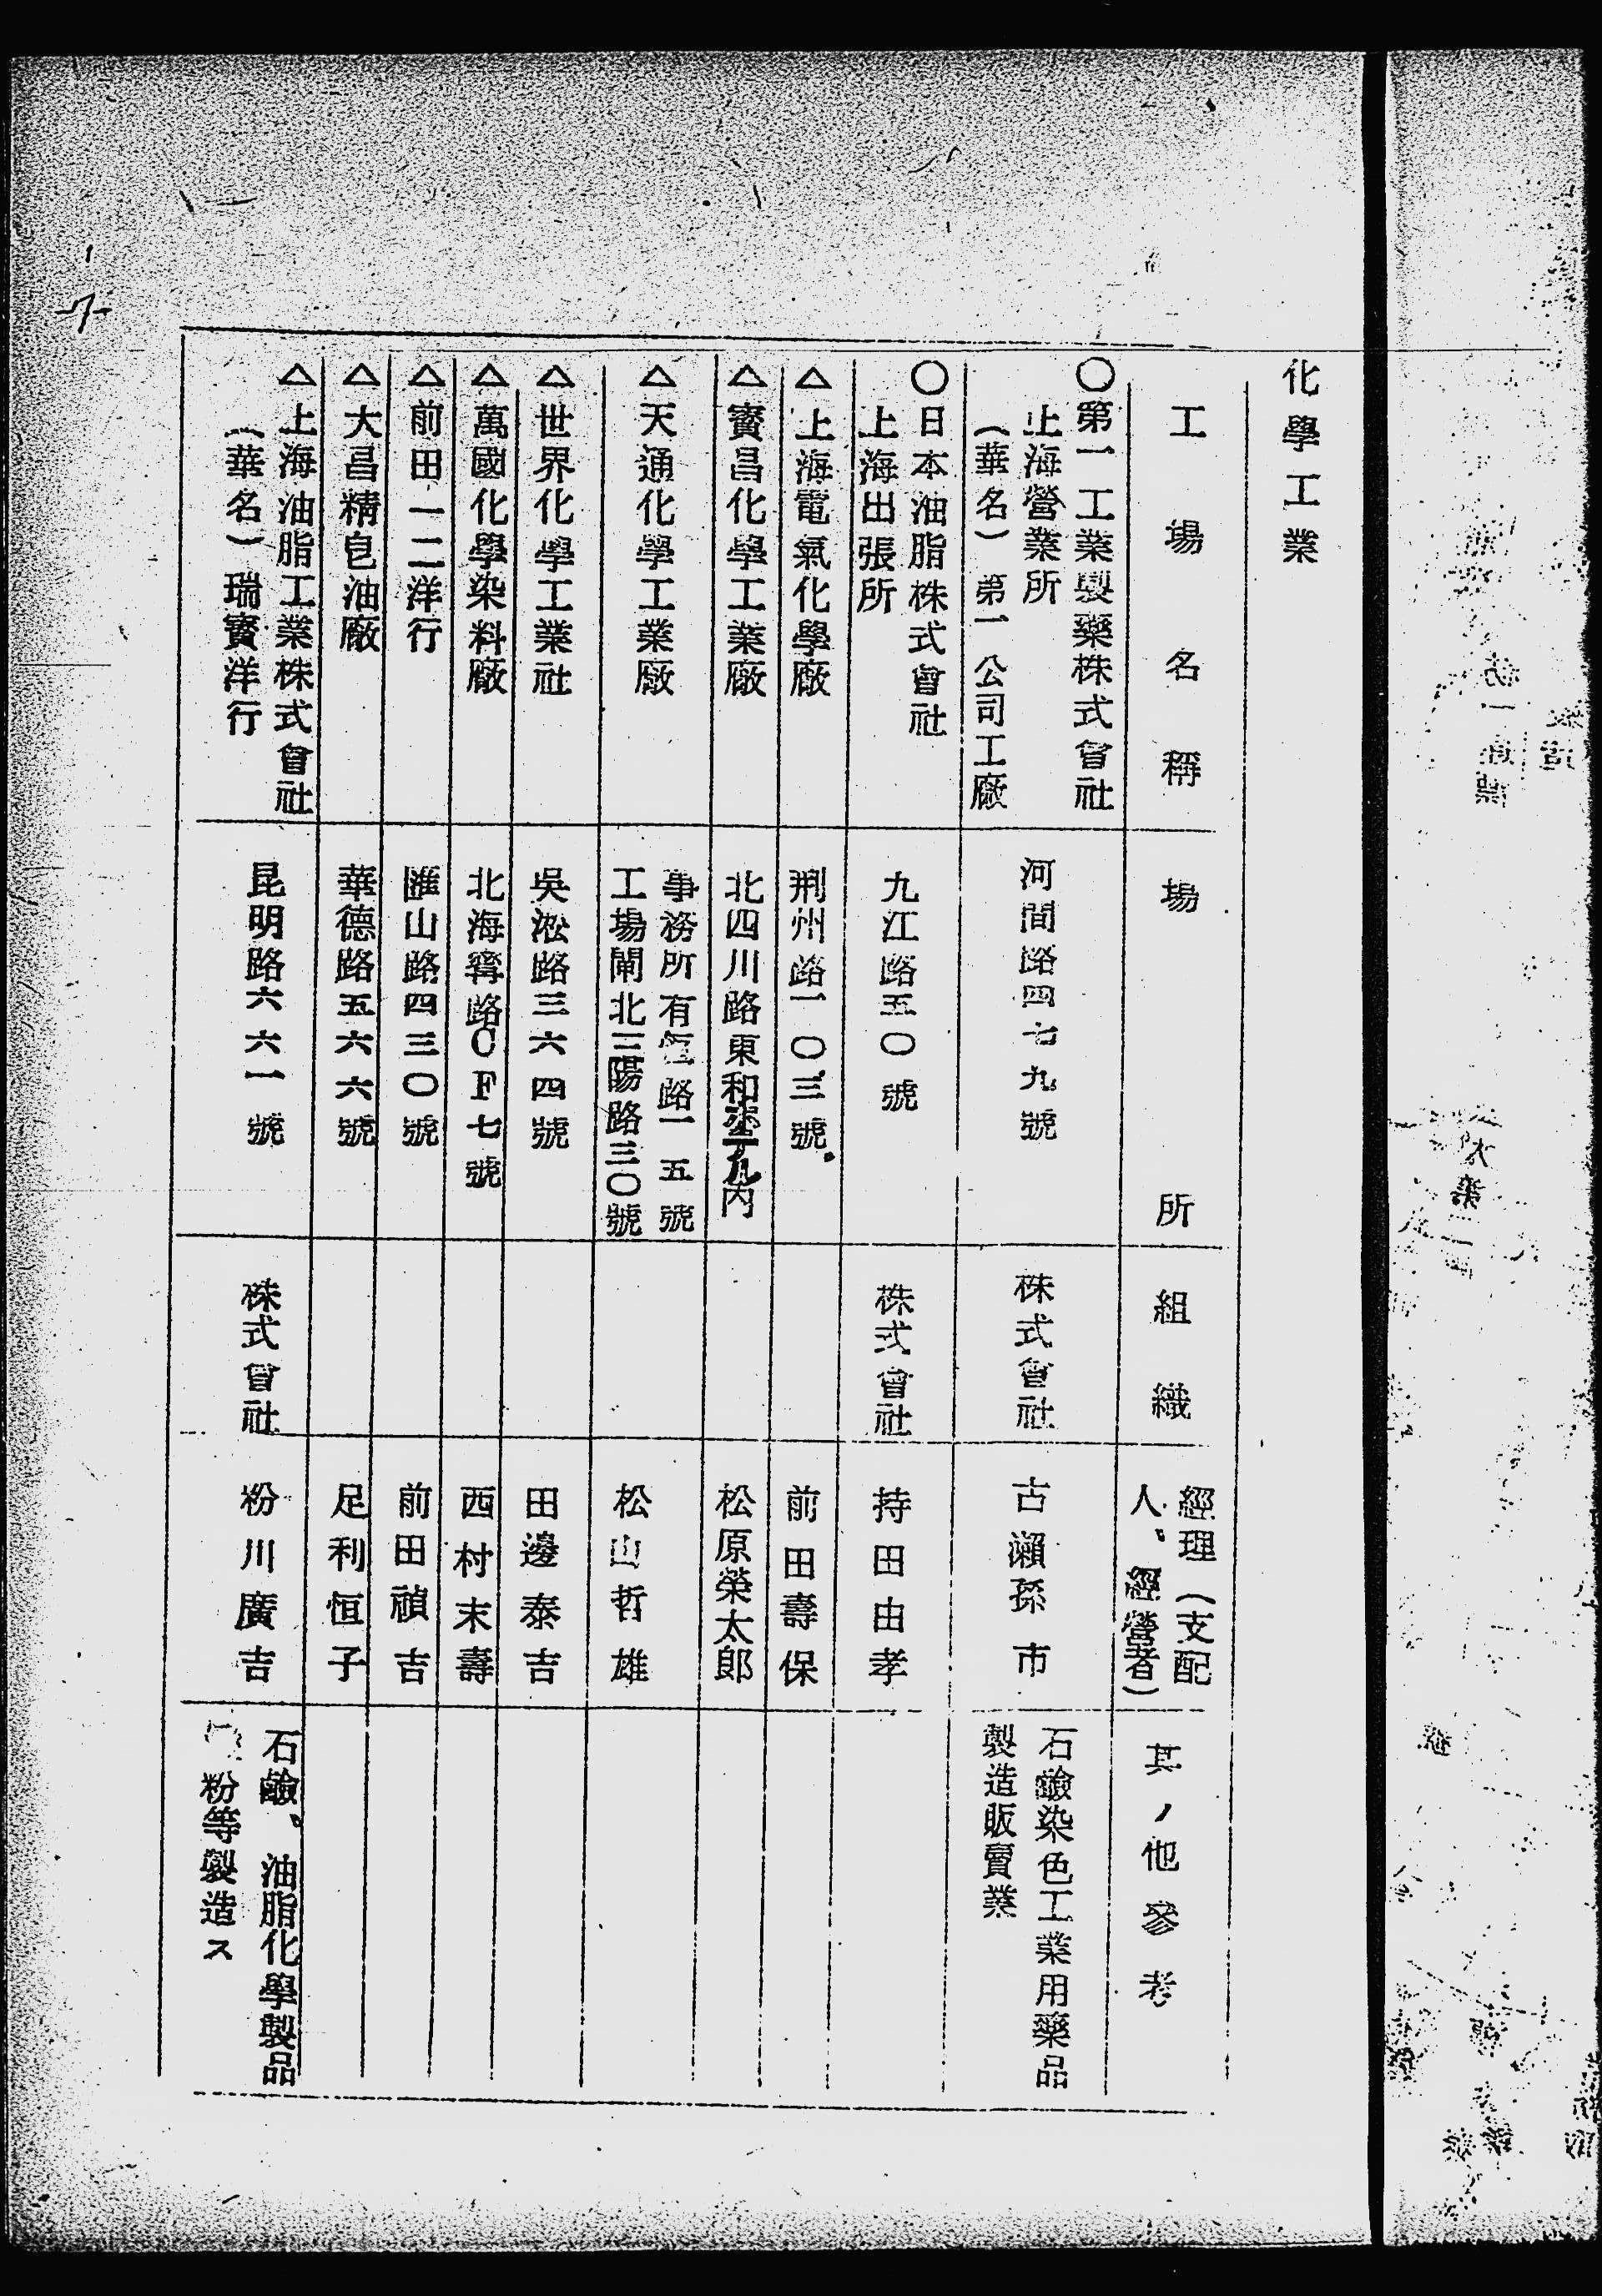 化學工業
工場名稱
場所
組織
經理(支配
人、經營者)
其ノ他參考
〇第一工業製藥株式會社
上海營業所
(華名)第一公司工廠
河間路四七九號
株式會社
古瀨孫市
石鹼染色工業用藥品
製造販賣業
〇日本油脂株式會社
上海出張所
九江路五〇號
株式會社
持田由孝
△上海電氣化學廠
荆州路一〇三號
前田壽保
△寳昌化學工業廠
北四川路東和內
松原榮太郎
△天通化學工業廠
事務所有恆路一五號
工場閘北三陽路三〇號
松山哲雄
△世界化學工業社
吳淞路三六四號
田邊泰吉
△萬國化學染料廠
北海寗路CF七號
西村末壽
△前田一二洋行
匯山路四三〇號
前田禎吉
△大昌精皂油廠
華德路五六六號
足利恒子
△上海油脂工業株式會社
(華名)瑞寳洋行
昆明路六六一號
株式會社
粉川廣吉
石鹼、油脂化學製品
粉等製造ス
7